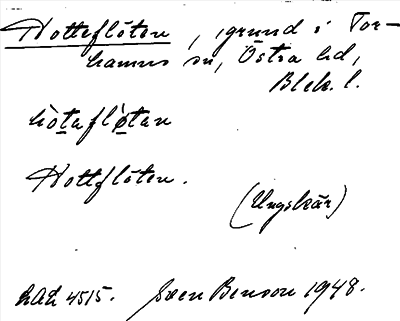 Hotteflöten, grund i Tor-
hamns sn, Östra hd,
Blek. l.
hòtaflø̀tan
Hottflöten.
(Ungskär)
LAL 4515. Sven Benson 1948.